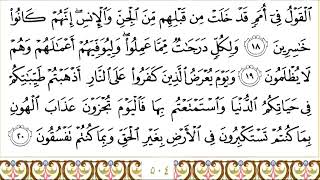 ٱلْقَوْلُ فِىٓ أُمَمٍ قَدْ خَلَتْ مِن قَبْلِهِم مِّنَ ٱلْجِنِّ وَٱلْإِنسِ ۖ إِنَّهُمْ كَانُوا۟
خَـٰسِرِينَ ١٨ وَلِكُلٍّ دَرَجَـٰتٌ مِّمَّا عَمِلُوا۟ ۖ وَلِيُوَفِّيَهُمْ أَعْمَـٰلَهُمْ وَهُمْ
لَا يُظْلَمُونَ ١٩ وَيَوْمَ يُعْرَضُ ٱلَّذِينَ كَفَرُوا۟ عَلَى ٱلنَّارِ أَذْهَبْتُمْ طَيِّبَـٰتِكُمْ
فِى حَيَاتِكُمُ ٱلدُّنْيَا وَٱسْتَمْتَعْتُم بِهَا فَٱلْيَوْمَ تُجْزَوْنَ عَذَابَ ٱلْهُونِ
بِمَا كُنتُمْ تَسْتَكْبِرُونَ فِى ٱلْأَرْضِ بِغَيْرِ ٱلْحَقِّ وَبِمَا كُنتُمْ تَفْسُقُونَ ٢٠
٥٠٤